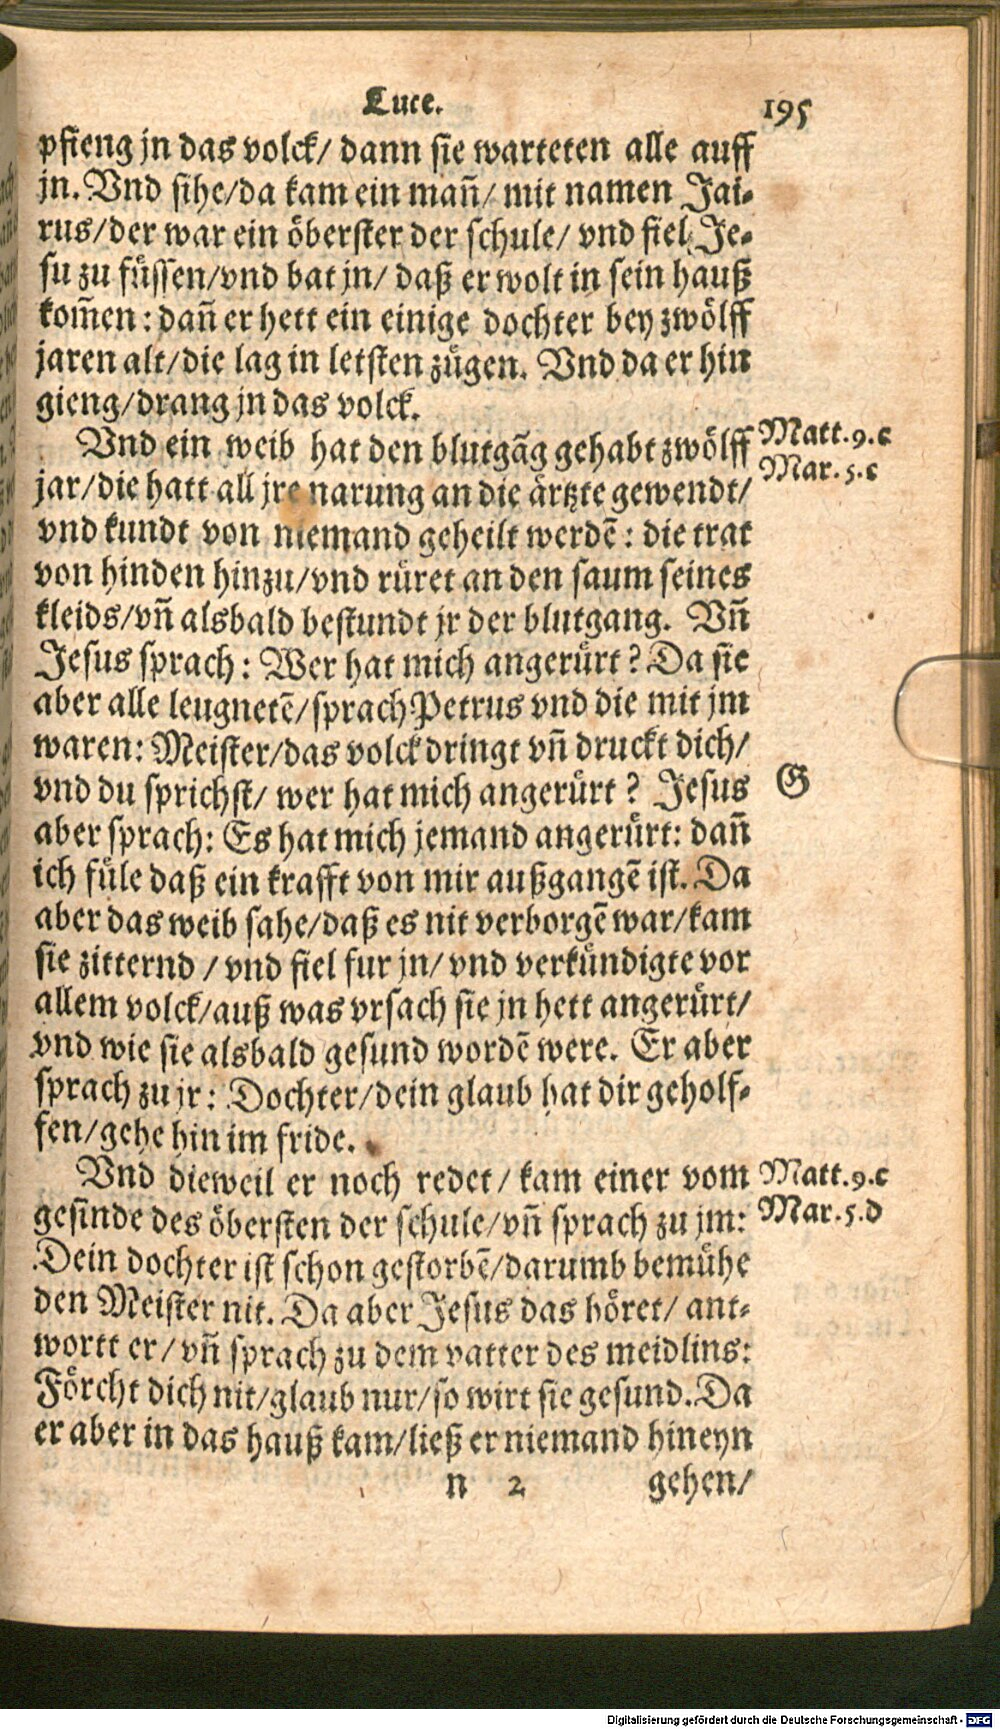 Luce. 195
pfieng jn das volck/ dann sie warteten alle auff
jn. Vnd sihe/da kam ein mañ/ mit namen Jai-
rus/der war ein öberster der schule/ vnd fiel Je-
su zu füssen/vnd bat jn/ daß er wolt in sein hauß
kom̃en: dañ er hett ein einige dochter bey zwölff
jaren alt/die lag in letsten zügen. Vnd da er hin
gieng/drang jn das volck.
Vnd ein weib hat den blutgãg gehabt zwölff
Matt.9.c
jar/die hatt all jre narung an die ärtzte gewendt/
Mar.5.c
vnd kundt von niemand geheilt werdẽ: die trat
von hinden hinzu/vnd rüret an den saum seines
kleids/vñ alsbald bestundt jr der blutgang. Vñ
Jesus sprach: Wer hat mich angerürt? Da sie
aber alle leugnetẽ/sprach Petrus vnd die mit jm
waren: Meister/das volck dringt vñ druckt dich/
vnd du sprichst/ wer hat mich angerürt? Jesus
G
aber sprach: Es hat mich jemand angerürt: dañ
ich füle daß ein krafft von mir außgangẽ ist. Da
aber das weib sahe/daß es nit verborgẽ war/kam
sie zitternd/ vnd fiel fur jn/ vnd verkündigte vor
allem volck/auß was vrsach sie jn hett angerürt/
vnd wie sie alsbald gesund wordẽ were. Er aber
sprach zu jr: Dochter/dein glaub hat dir geholf-
fen/gehe hin im fride.
Vnd dieweil er noch redet/ kam einer vom
Matt.9.c
gesinde des öbersten der schule/vñ sprach zu jm:
Mar.5.d
Dein dochter ist schon gestorbẽ/darumb bemühe
den Meister nit. Da aber Jesus das höret/ ant-
wortt er/ vñ sprach zu dem vatter des meidlins:
Förcht dich nit/glaub nur/so wirt sie gesund. Da
er aber in das hauß kam/ließ er niemand hineyn
n 2 gehen/
Digitalisierung gefördert durch die Deutsche Forschungsgemeinschaft - DFG